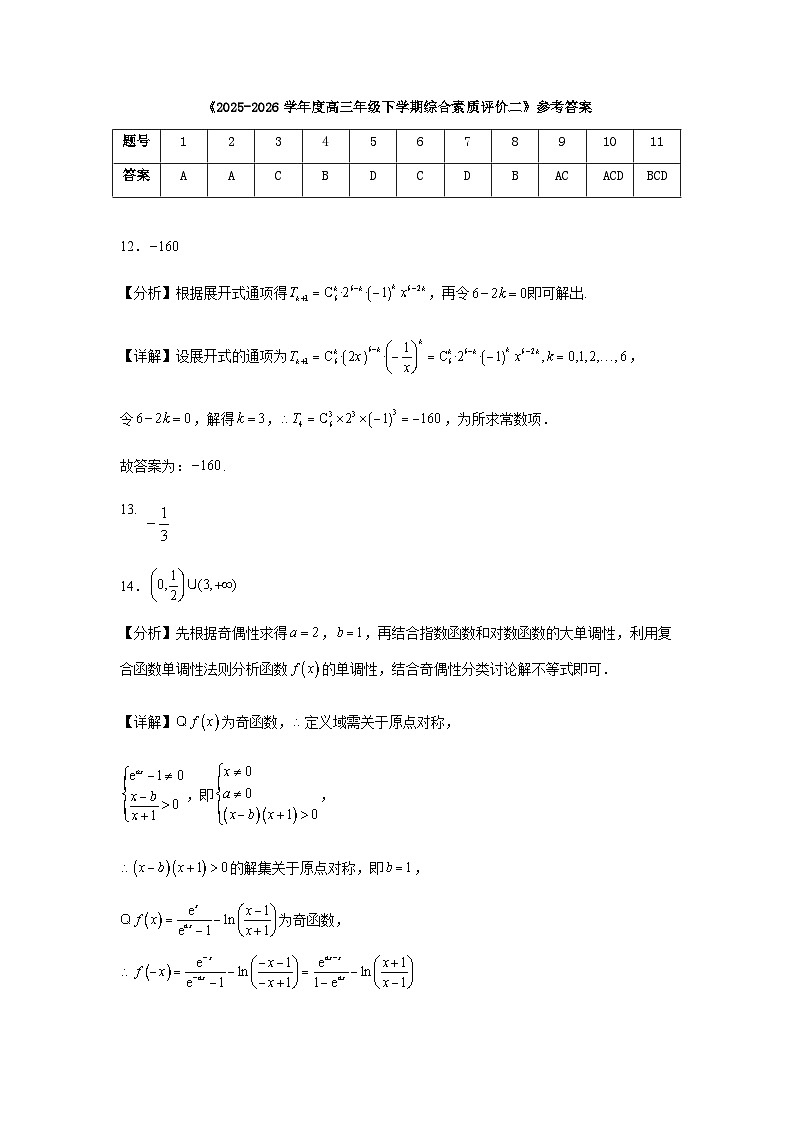 《2025-2026 学年度高三年级下学期综合素质评价二》参考答案
题号 1 2 3 4 5 6 7 8 9 10 11
答案 A A C B D C D B AC ACD BCD
12．−160
【分析】根据展开式通项得T_{k+1} = C_6^k·2^{6−k}·(−1)^k x^{6−2k}，再令6−2k = 0即可解出.
【详解】设展开式的通项为T_{k+1} = C_6^k·(2x)^{6−k}·(−1/x)^k = C_6^k·2^{6−k}·(−1)^k x^{6−2k}, k = 0,1,2,…,6，
令6−2k = 0，解得k = 3，∴T_4 = C_6^3×2^3×(−1)^3 = −160，为所求常数项．
故答案为：−160．
13. −1/3
14．(0,1/2)∪(3,+∞)
【分析】先根据奇偶性求得a = 2，b = 1，再结合指数函数和对数函数的大单调性，利用复
合函数单调性法则分析函数f(x)的单调性，结合奇偶性分类讨论解不等式即可．
【详解】Q f(x)为奇函数，∴定义域需关于原点对称，
{e^{ax}−1≠0, (x−b)/(x+1)>0，即{x≠0, a≠0, (x−b)(x+1)>0，
∴(x−b)(x+1)>0的解集关于原点对称，即b = 1，
Q f(x) = e^x/(e^{ax}−1) − ln((x−1)/(x+1))为奇函数，
∴ f(−x) = e^{−x}/(e^{−ax}−1) − ln((−x−1)/(−x+1)) = e^{ax−x}/(1−e^{ax}) − ln((x+1)/(x−1))